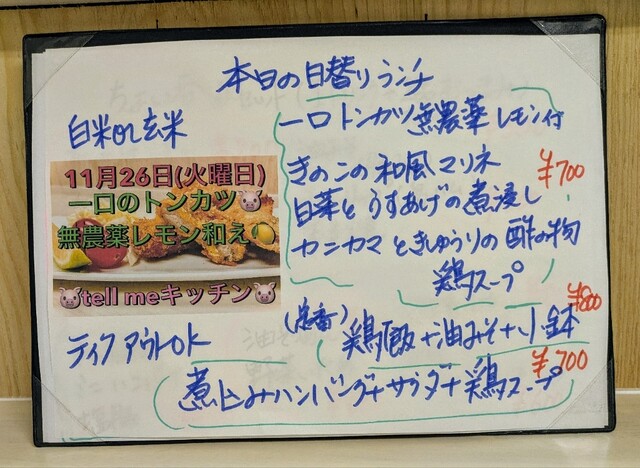 本日の日替りランチ
白米or玄米
一口トンカツ無農薬レモン付
きのこの和風マリネ
¥700
白菜とうすあげの煮浸し
カニカマときゅうりの酢の物
鶏スープ
11月26日(火曜日)
一口のトンカツ🐷
無農薬レモン和え🍋
🐷tell meキッチン🐷
テイクアウトOK
鶏飯+油みそ+小鉢
¥800
煮込みハンバーグ+サラダ+鶏スープ
¥700